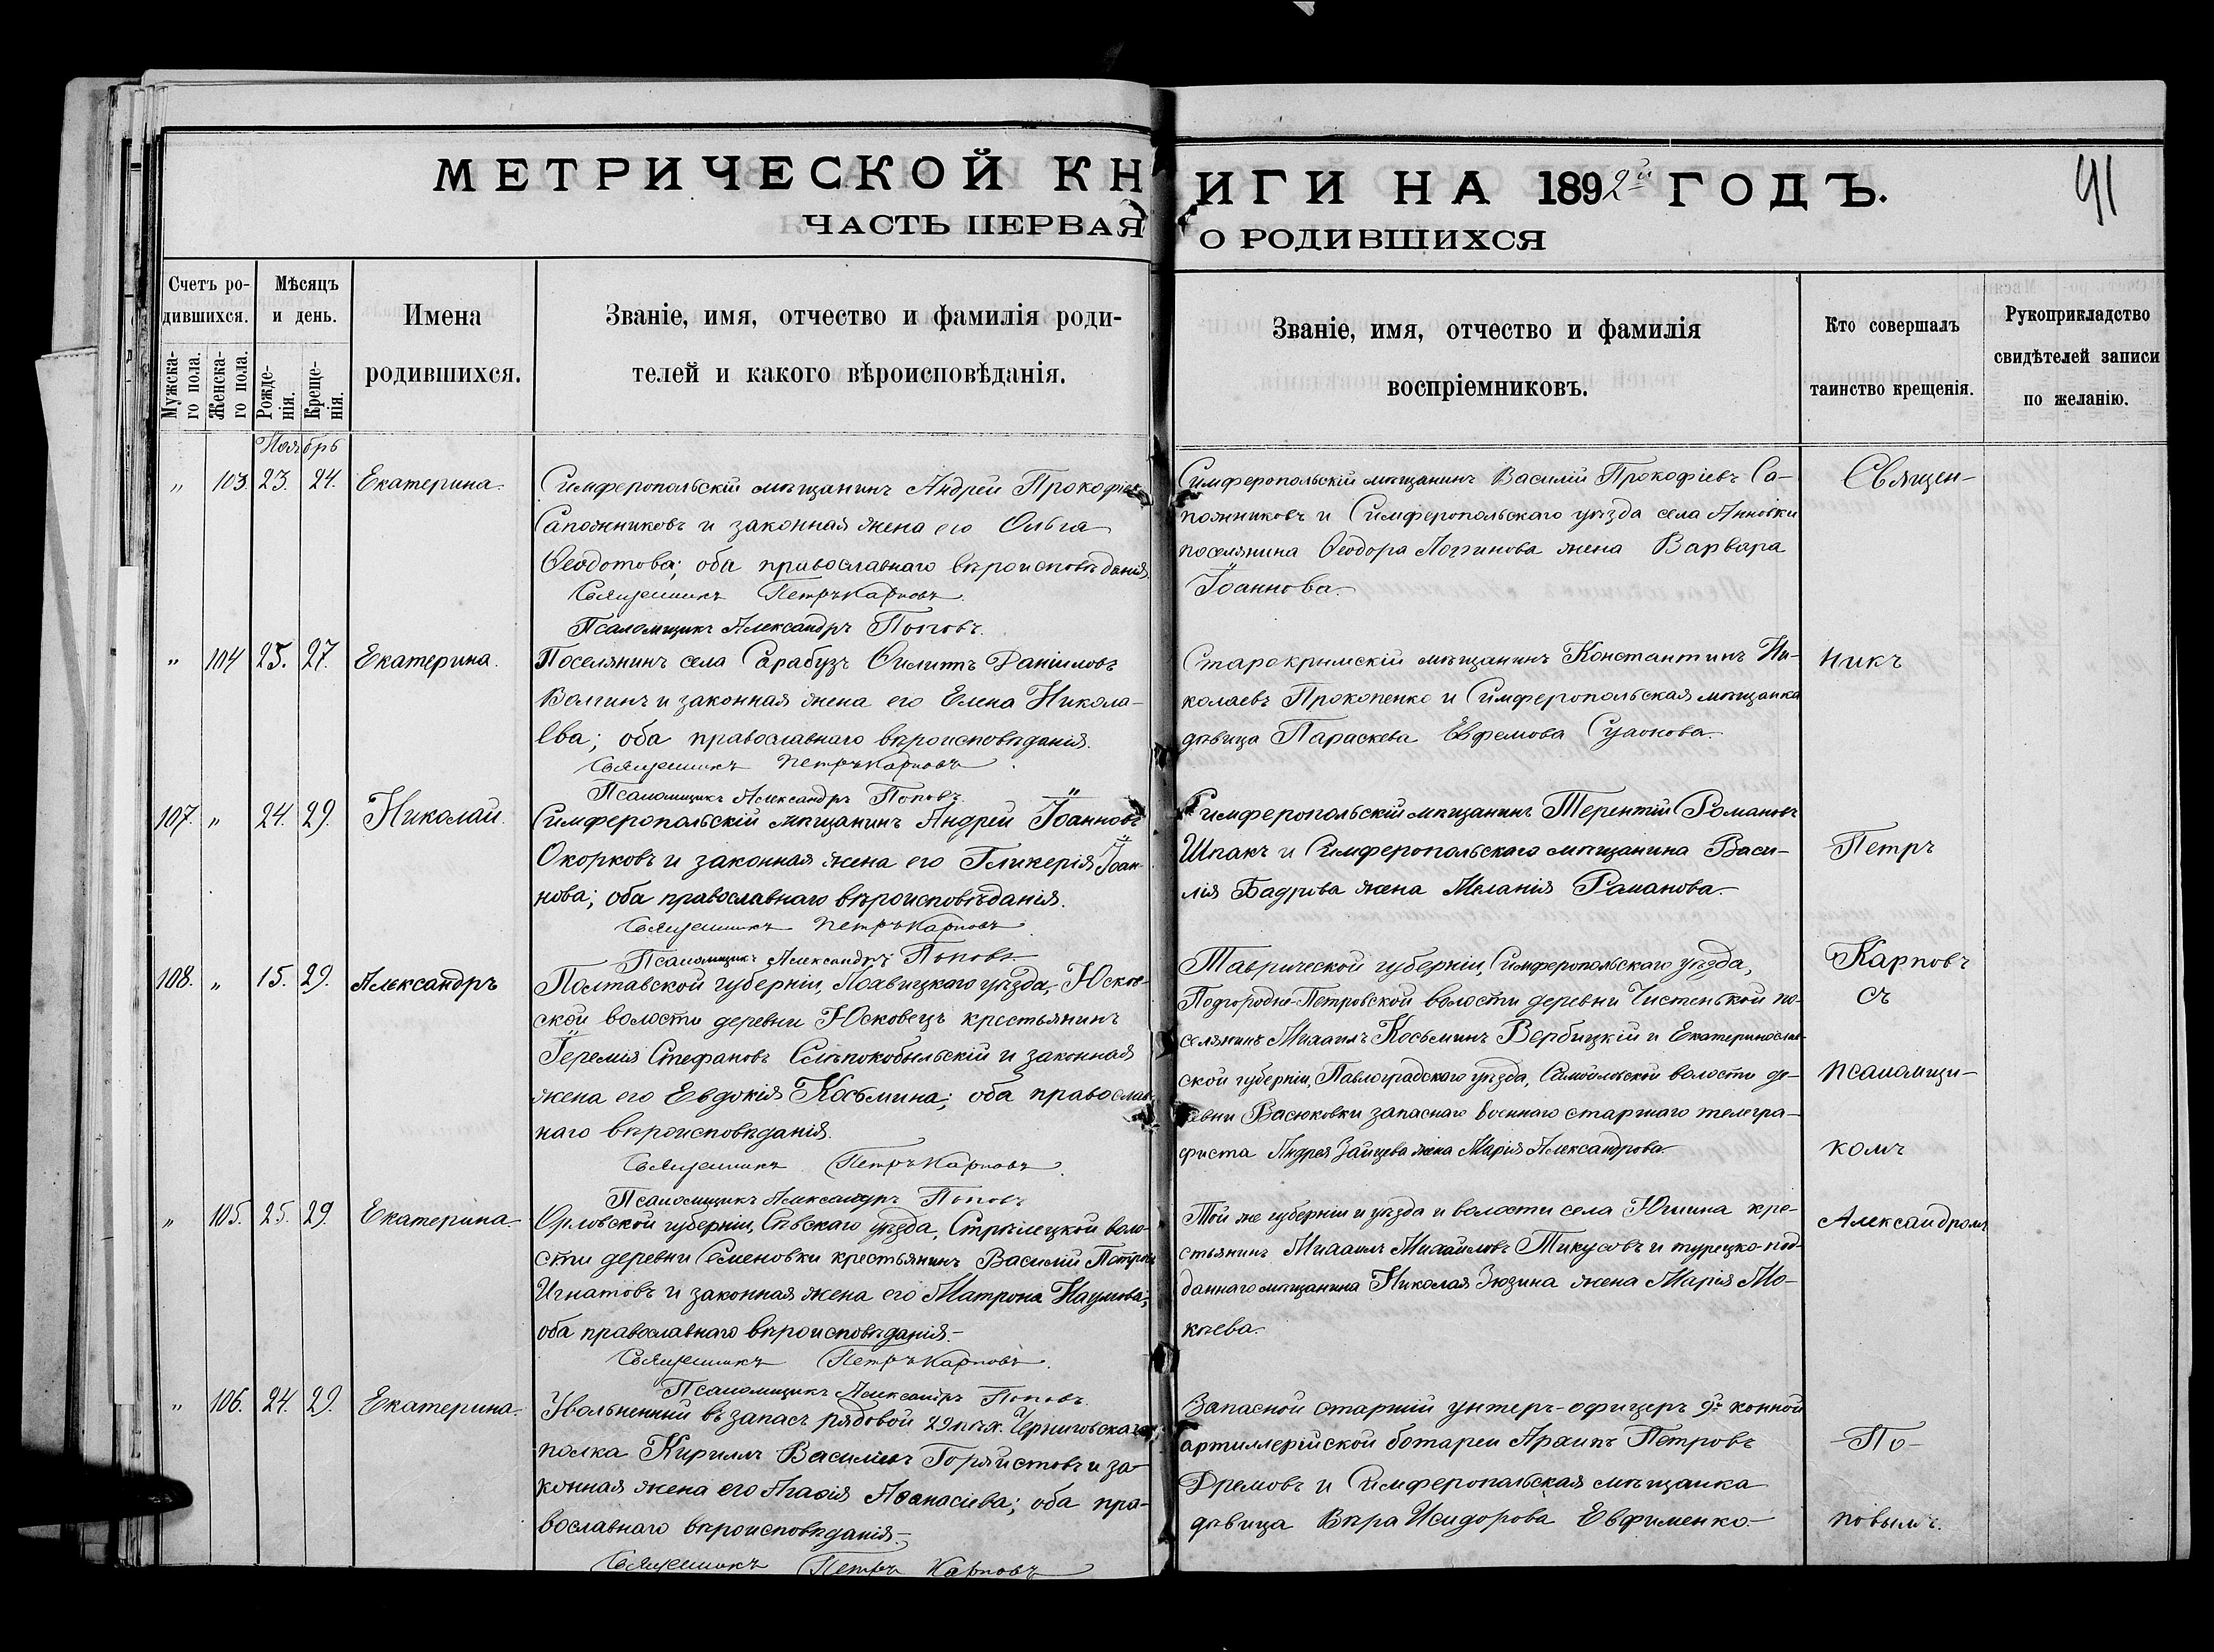 МЕТРИЧЕСКОЙ КНИГИ НА 1892й ГОДЪ.
41
ЧАСТЬ ПЕРВАЯ О РОДИВШИХСЯ
Счетъ ро-
дившихся.
Мужска-
го пола.
Женска-
го пола.
Мѣсяцъ
и день.
Рожде-
нія.
Креще-
нія.
Имена
родившихся.
Званіе, имя, отчество и фамилія роди-
телей и какого вѣроисповѣданія.
Званіе, имя, отчество и фамилія
воспріемниковъ.
Кто совершалъ
таинство крещенія.
Рукоприкладство
свидѣтелей записи
по желанію.
Ноябрь
" 103. 23. 24. Екатерина.
Симферопольскій мѣщанинъ Андрей Прокофіевъ
Сапожниковъ и законная жена его Ольга
Ѳеодотова; оба православнаго вѣроисповѣданія.
Священникъ Петръ Карповъ.
Псаломщикъ Александръ Поповъ.
Симферопольскій мѣщанинъ Василій Прокофіевъ Са-
пожниковъ и Симферопольскаго уѣзда села Анновки
поселянина Ѳеодора Логвинова жена Варвара
Іоаннова.
" 104 25. 27. Екатерина.
Поселянинъ села Сарабузъ Филиппъ Даніиловъ
Волгинъ и законная жена его Елена Никола-
ева; оба православнаго вѣроисповѣданія.
Священникъ Петръ Карповъ.
Псаломщикъ Александръ Поповъ.
Старокрымскій мѣщанинъ Константинъ Ни-
колаевъ Прокопенко и Симферопольская мѣщанка
дѣвица Параскева Евфемова
107. " 24. 29. Николай.
Симферопольскій мѣщанинъ Андрей Іоанновъ
Окорковъ и законная жена его Гликерія Іоан-
нова; оба православнаго вѣроисповѣданія.
Священникъ Петръ Карповъ.
Псаломщикъ Александръ Поповъ.
Симферопольскій мѣщанинъ Терентій Романовъ
Шпакъ и Симферопольскаго мѣщанина Васи-
лія Бадрова жена Меланія Романова.
108. " 15. 29. Александръ
Полтавской губерніи, Лохвицкаго уѣзда, Юсков-
ской волости деревни Юсковецъ крестьянинъ
Іеремія Стефановъ Слѣпокобыльскій и законная
жена его Евдокія Косьмина; оба православ-
наго вѣроисповѣданія.
Священникъ Петръ Карповъ.
Псаломщикъ Александръ Поповъ
Таврической губерніи, Симферопольскаго уѣзда,
Подгородне-Петровской волости деревни Чистенькой по-
селянинъ Михаилъ Косьминъ Вербицкій и Екатеринослав-
ской губерніи, Павлоградскаго уѣзда, Самойловской волости де-
ревни Васюковки запаснаго военнаго старшаго телегра-
фиста Андрея Зайцева жена Марія Александрова.
" 105. 25. 29. Екатерина.
Орловской губерніи, Сѣвскаго уѣзда, Стрѣлецкой воло-
сти деревни Семеновки крестьянинъ Василій Петровъ
Игнатовъ и законная жена его Матрона Наумова;
оба православнаго вѣроисповѣданія.
Священникъ Петръ Карповъ.
Псаломщикъ Александръ Поповъ.
Той же губерніи и уѣзда и волости села Юшина кре-
стьянинъ Михаилъ Михайловъ Тикусовъ и турецко-под-
даннаго мѣщанина Николая Зюзина жена Марія Мо-
кѣева.
" 106. 24. 29. Екатерина.
Уволенный въ запасъ рядовой 29 пѣх. Черниговскаго
полка Кириллъ Васильевъ и за-
конная жена его Агафія Аѳанасіева; оба пра-
вославнаго вѣроисповѣданія.
Священникъ Петръ Карповъ
Запасной старшій унтеръ-офицеръ 9й конной
артиллерійской батареи Архипъ Петровъ
Дремовъ и Симферопольская мѣщанка
дѣвица Вѣра Исидорова Евфименко.
Священ-
никъ
Петръ
Карповъ
съ
псаломщи-
комъ
Александромъ
По-
повымъ.